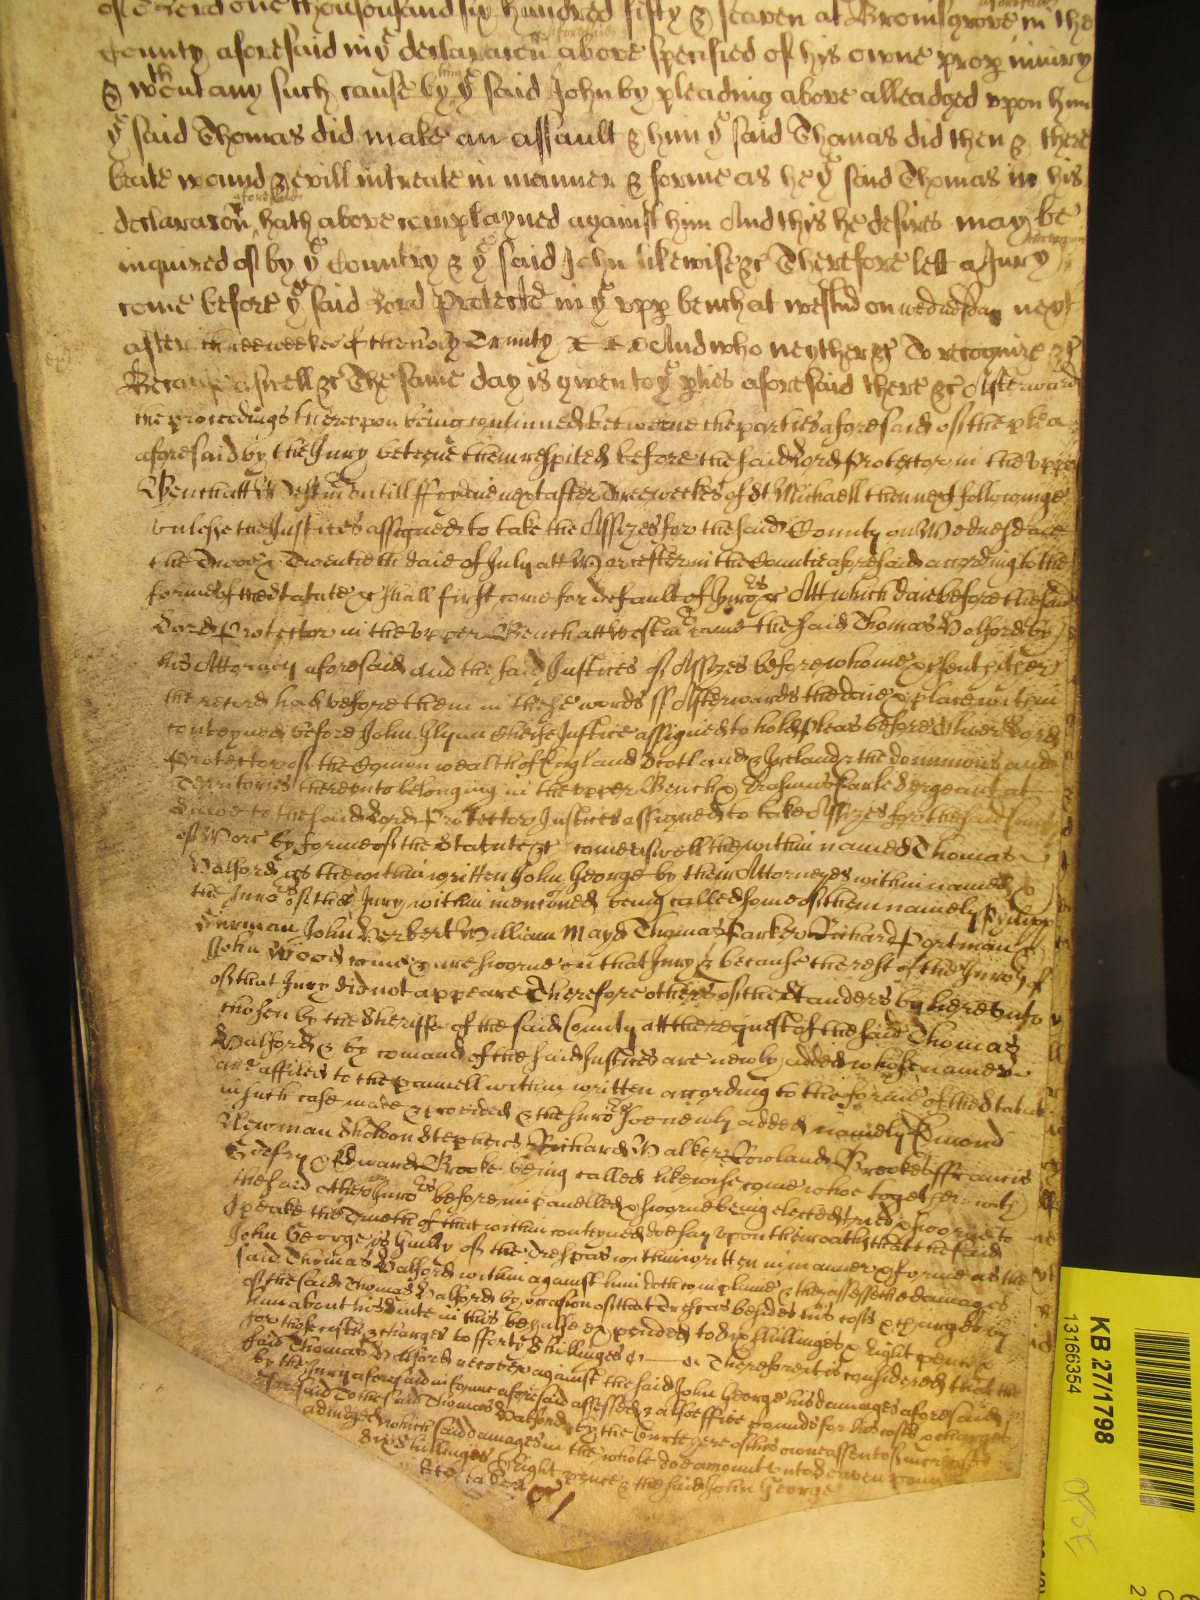 of o{r} Lord one thousound six hundred fifty & seaven at Bromsgrove in the
aforesaid
County aforesaid in y{e} declarac̃on above specified of his owne prop iniury
& w{th}out any such cause by y{e} said John by pleading above alleadged upon him
him
y{e} said Thomas did make an assault & him y{e} said Thomas did then & there
beate wound & evill intreate in manner & forme as he y{e} said Thomas in his
aforesaid
declarac̃on hath above complayned against him And this he desires may be
inquired of by y{e} Country & y{e} said John likewise &c Therefore lett a Jury
thereupon
come before y{e} said Lord Protecto{r} in y{e} upp bench at westm̃ on wednesday next
after three weekes of the holy Trinity And who neyther &c To recognize &c
Because aswell &c The same day is given to y{e} pties aforesaid there &c Afterwards
the proceedings thereupon being continued betweene the parties aforesaid of the plea
aforesaid by the Jury betweene them respited before the said Lord Protector in the Upper
Bench att Westm̃ untill ffrydaie next after three weekes of St Michaell then next followinge
unlesse the Justices assigned to take the Assizes for the said County on Wednesdaie
the Twoe & Twentieth daie of July att Worcester in the Countie aforesaid according to the
forme of the statute &c shall first come for default of Juro{rs} &c Att which daie before the said
Lord Protector in the Upper Bench att Westm̃ came the said Thomas Walford by
his Attorney aforesaid And the said Justices of Assizes before whome &c sent hither
the record had before them in these words ss Afterwards the daie & place within
conteyned before John Glynn cheife Justice assigned to hold pleas before Oliver Lord
Protector of the Comon wealth of England Scotland & Ireland & the dominions and
Territories thereunto belonging in the upper Bench & Erasmus Earle Sergeant at
Lawe to the said Lord Protector Justices assigned to take Assizes for the said County
of Worc by forme of the Statute &c come aswell the within named Thomas
Walford as the within written John George by their Attorneyes within named &
the Juro{rs} of the Jury within menc̃oned being called some of them namely Phillip
John Herbert William Mayd Thomas Parker Richard Portman &
John Wood come & are sworne on that Jury & because the rest of the Juro{rs} of
of that Jury did not appeare Therefore others of the standers by hereunto
chosen by the Sheriffe of the said County att the request of the said Thomas
Walford & by comand of the said Justices are newly added whose names
are affiled to the pannell within written according to the forme of the Statute
in such case made & provided & the Juro{rs} soe newly added namely Edmond
Newman Stephens Richard Walker Rowland Brooke ffrancis
Edward Brooke being called likewise come whoe together with
the said other Juro{rs} before impanelled & sworne being elected tryed & sworne to
speake the Trueth of that within conteyned doe say upon their oath that the said
John George is Guilty of the Trespas within written in manner & forme as the
said Thomas Walford within against him doth complaine & they assesse the damages
of the said Thomas Walford by occasion of that Trespas besides his costs & charges by
him about his suite in this behalfe expended to Six shillinges & Eight pence &
for those costs & charges to fforty Shillinges Therefore it is considered that the
said Thomas Walford recover against the said John George his damages aforesaid
by the Jury aforesaid in forme aforesaid assessed & alsoe ffive pounds for his costs & charges
aforesaid To the said Thomas Walford by the Courte here of his owne assent of increase
adiudged which said damages in the whole doe amount unto Seaven pounds
Six Shillinges & Eight pence & the said John George
bee taken &c
KB 27/1798
13166354